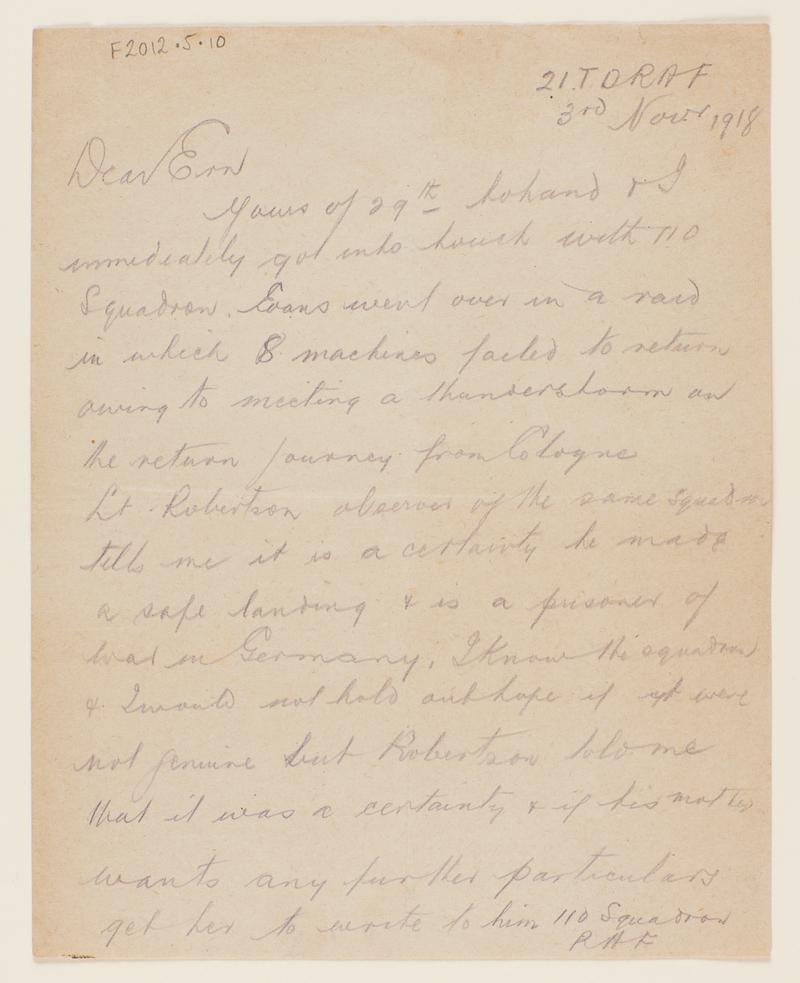 F2012.5.10
21.T.D RAF
3rd Novr 1918
Dear Ern
Yours of 29th to hand & I
immediately got into touch with 110
Squadron. Evans went over in a raid
in which 8 machines failed to return
owing to meeting a thunderstorm on
the return journey from Cologne
Lt. Robertson observer of the same squadron
tells me it is a certainty he made
a safe landing & is a prisoner of
war in Germany. I know the squadron
& I would not hold out hope if it were
not genuine but Robertson told me
that it was a certainty & if his mother
wants any further particulars
get her to write to him 110 Squadron
RAF